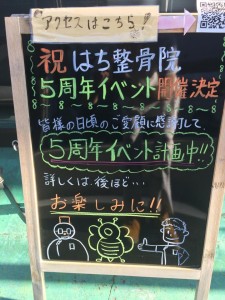 アクセスはこちら!
祝 はち整骨院
5周年イベント開催決定
皆様の日頃のご愛顧に感謝して、
5周年イベント計画中!!
詳しくは、後ほど…
お楽しみに!!